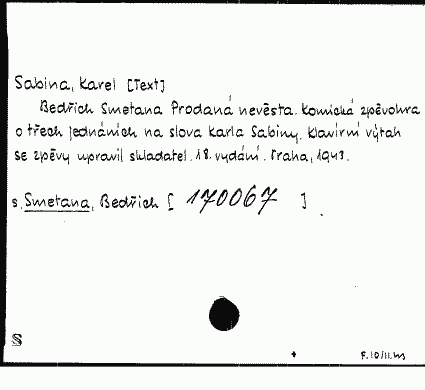 Sabina, Karel [Text]
Bedřich Smetana Prodaná nevěsta. Komická zpěvohra
o třech jednáních na slova Karla Sabiny. Klavírní výtah
se zpěvy upravil skladatel. 18. vydání. Praha, 1943.
s. Smetana, Bedřich [ 170067 ]
S
F. 10/11.